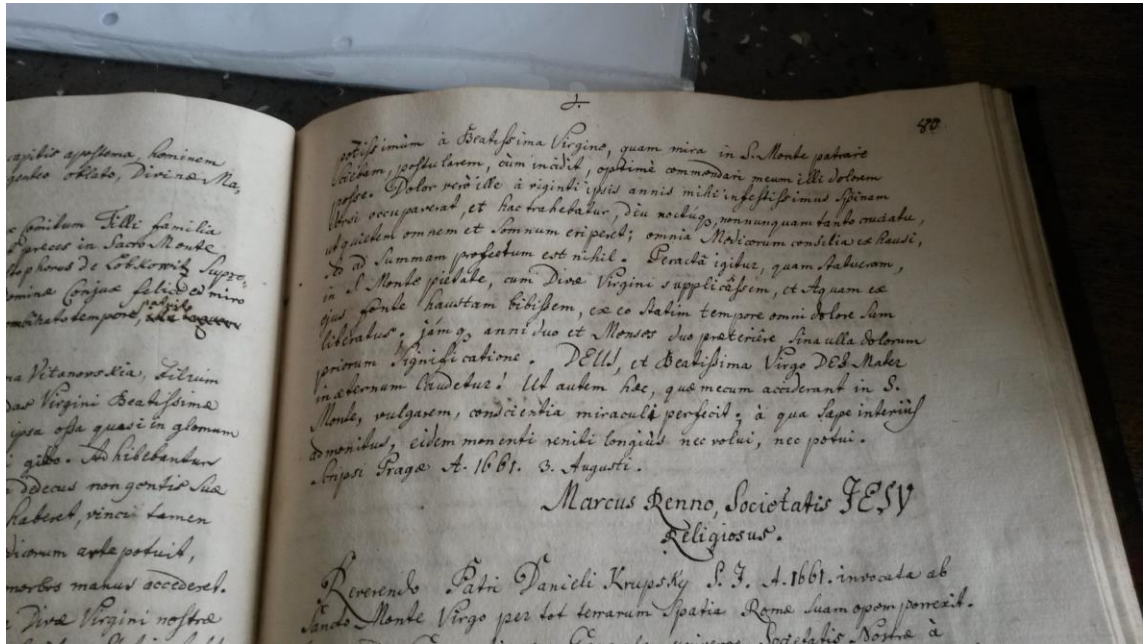 capitis apostema, hominem
argenteo oblato, Divinæ Ma-
Comitum Tilli familia
preces in Sacro Monte
stophorus de Lobkowitz Supre-
Domina Conjux felici et miro
tempore, partu
na Vitanovskia, Filium
das Virgini Beatissimæ
ipsa ossa quasi in glomum
gibbo. Adhibebantur
dedecus non gentis suæ
haberet, vinci tamen
dicorum arte potuit,
morbis manus accederet.
Divæ Virgini nostræ
J.
83
potissimum à Beatissima Virgine, quam mira in S. Monte patrare
sciebam, postularem, cùm incidit, optimè commendari meum illi dolorem
posse. Dolor verò ille à viginti ipsis annis mihi infestissimus Spinam
dorsi occupaverat, et hac trahebatur, diu noctúq3, nonnunquam tanto cruciatu,
ut quietem omnem et Somnum eriperet; omnia Medicorum consilia exhausi,
sed ad Summam profectum est nihil. Peractâ igitur, quam statueram,
in S. Monte pietate, cum Divæ Virgini supplicâssem, et Aquam ex
ejus fonte haustam bibissem, ex eo statim tempore omni dolore sum
liberatus. jámq3 anni duo et Menses duo præteriêre sine ulla dolorum
priorum significatione. DEUS, et Beatissima Virgo DEI Mater
in æternum laudetur! Ut autem hæc, quæ mecum acciderant in S.
Monte, vulgarem, conscientia miraculi perfecit; à qua sæpe interiùs
admonitus, eidem monenti reniti longiùs nec volui, nec potui.
Scripsi Pragæ A. 1661. 3. Augusti.
Marcus Renno, Societatis JESV
Religiosus.
Reverendo Patri Danieli Krupsky S. J. A. 1661. invocata ab
Sancto Monte Virgo per tot terrarum Spatia Romæ suam opem porrexit.
Societatis Nostræ à